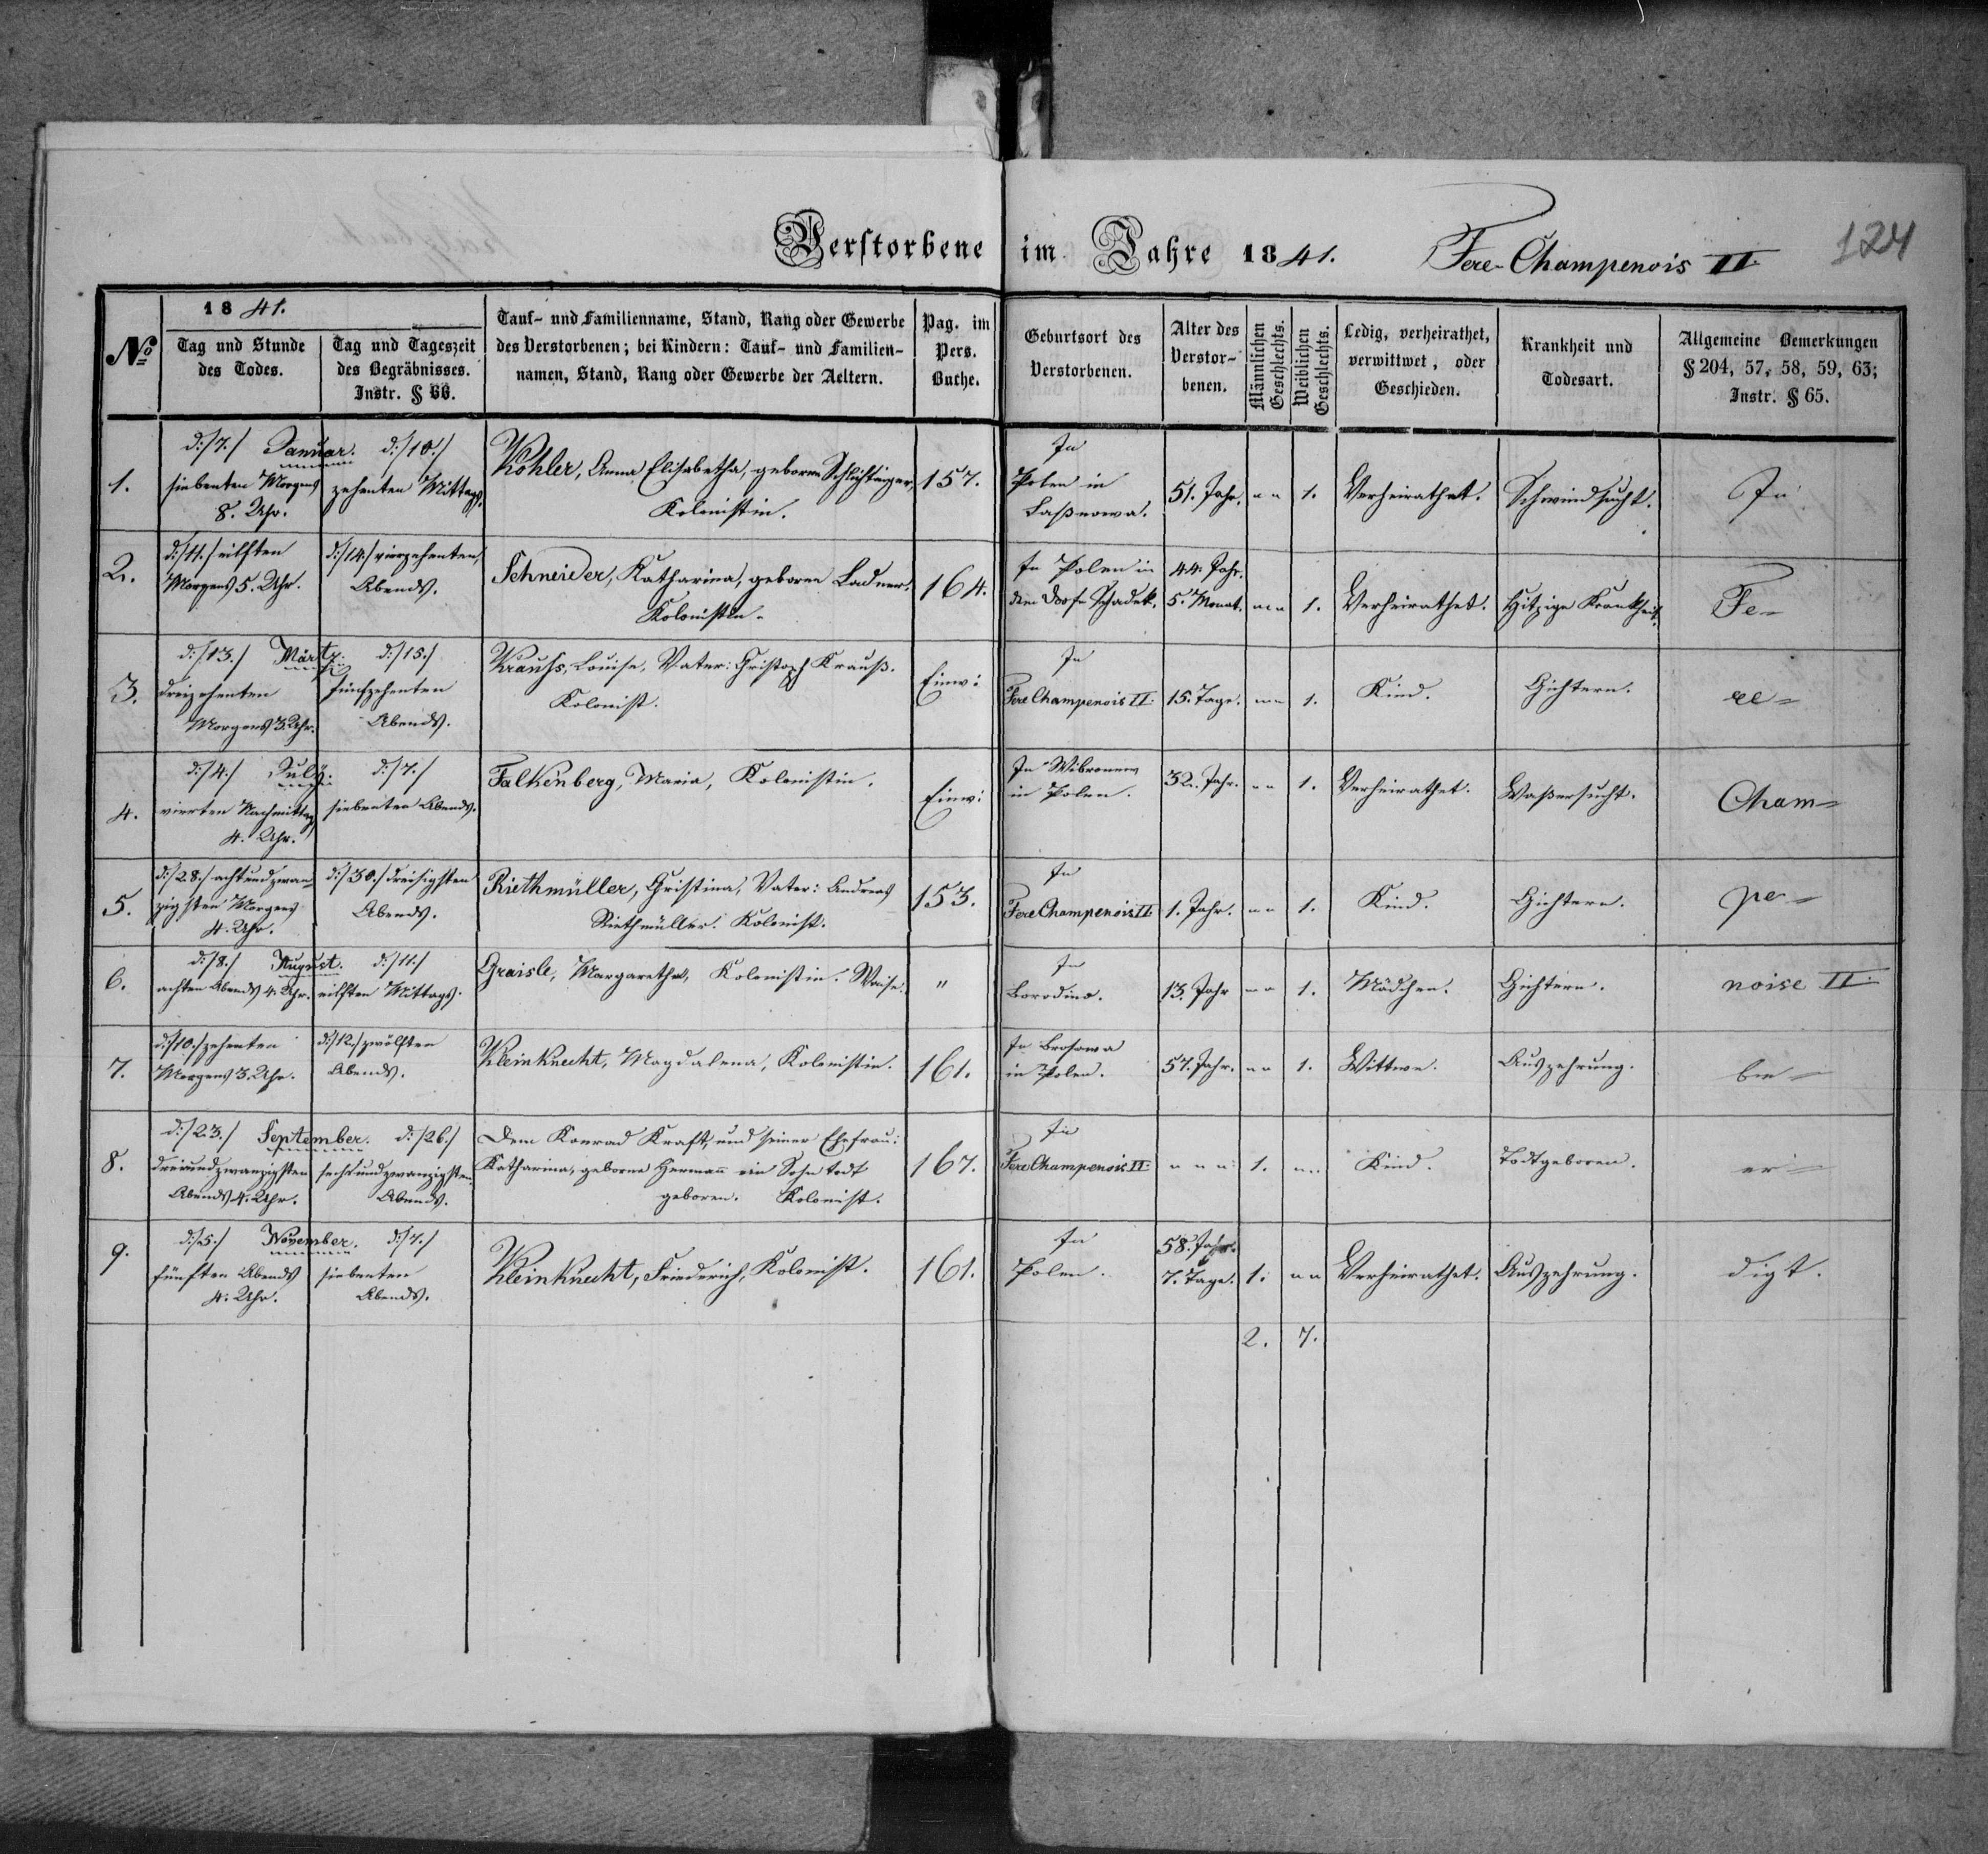 Verstorbene im Jahre 1841. Fere-Champenois II. 124
No
1841.
Tag und Stunde des Todes.
Tag und Tageszeit des Begräbnisses. Instr. § 66.
Tauf- und Familienname, Stand, Rang oder Gewerbe
des Verstorbenen; bei Kindern: Tauf- und Familien-
namen, Stand, Rang oder Gewerbe der Aeltern.
Pag. im Pers. Buche.
Geburtsort des Verstorbenen.
Alter des Verstor-benen.
Männlichen Geschlechts.
Weiblichen Geschlechts.
Ledig, verheirathet, verwittwet, oder Geschieden.
Krankheit und Todesart.
Allgemeine Bemerkungen
§ 204, 57, 58, 59, 63;
Instr. § 65.
1.
d:/7./ Januar. d:/10./
siebenten Morgens
8. Uhr.
zehenten Mittags.
Köhler, Anna Elisabetha, geborne Schlichtinger,
Kolonistin.
157.
In
Polen in
51. Jahr. " " 1. Verheirathet. Schwindsucht. In
2.
d:/11./ eilften
Morgens 5. Uhr.
d:/14./ vierzehenten,
Abends.
Schneider, Katharina, geborne Ladner.
Kolonistin.
164.
In Polen in
dem Dorfe Schadek.
44. Jahr.
5. Monat. " " 1. Verheirathet. Hitzige Krankheit. Fe-
3.
d:/13./ Märtz. d:/15./
dreizehenten
Morgens 3. Uhr.
fünfzehenten
Abends.
Krauhs, Louise, Vater: Christoph Krauß.
Kolonist.
Einw:
In
Fere Champenois II.
15. Tage. " " 1. Kind. Gichtern. re=
4.
d:/4./ July. d:/7./
vierten Nachmittag
4. Uhr.
siebenten Abends.
Falkenberg, Maria, Kolonistin.
Einw:
in Polen.
32. Jahr. " " 1. Verheirathet. Waßersucht. Cham=
5.
d:/28./ achtundzwan-
zigsten Morgens
4. Uhr.
d:/30./ dreisigsten
Abends.
Riethmüller, Christina, Vater: Andreas
Riethmüller. Kolonist.
153.
In
Fere Champenois II
1. Jahr. " " 1. Kind. Gichtern. pe=
6.
d:/8./ August. d:/11./
achten Abends 4. Uhr.
eilften Mittags.
Graisle, Margaretha, Kolonistin. Waise.
"
In
Borodino.
13. Jahr " " 1. Mädchen. Gichtern. noise II.
7.
d:/10./ zehenten
Morgens 3. Uhr.
d:/12./ zwölften
Abends.
Kleinknecht, Magdalena, Kolonistin.
161.
In Brosowa
in Polen.
57. Jahr. " " 1. Wittwe. Auszehrung. be=
8.
d:/23./ September. d:/26./
dreiundzwanzigsten
Abends 4. Uhr.
sechsundzwanzigsten.
Abends.
Dem Konrad Kraft, und seiner Ehefrau:
Katharina, geborne Hermañ ein Sohn todt
geboren. Kolonist.
167.
In
Fere Champenois II.
" " " 1. " " Kind. Todtgeboren. er=
9.
d:/5./ November. d:/7./
fünften Abends
4. Uhr.
siebenten
Abends.
Kleinknecht, Friederich, Kolonist.
161.
In
Polen.
58. Jahr.
7. Tage. 1. " " Verheirathet. Auszehrung. digt.
2. 7.